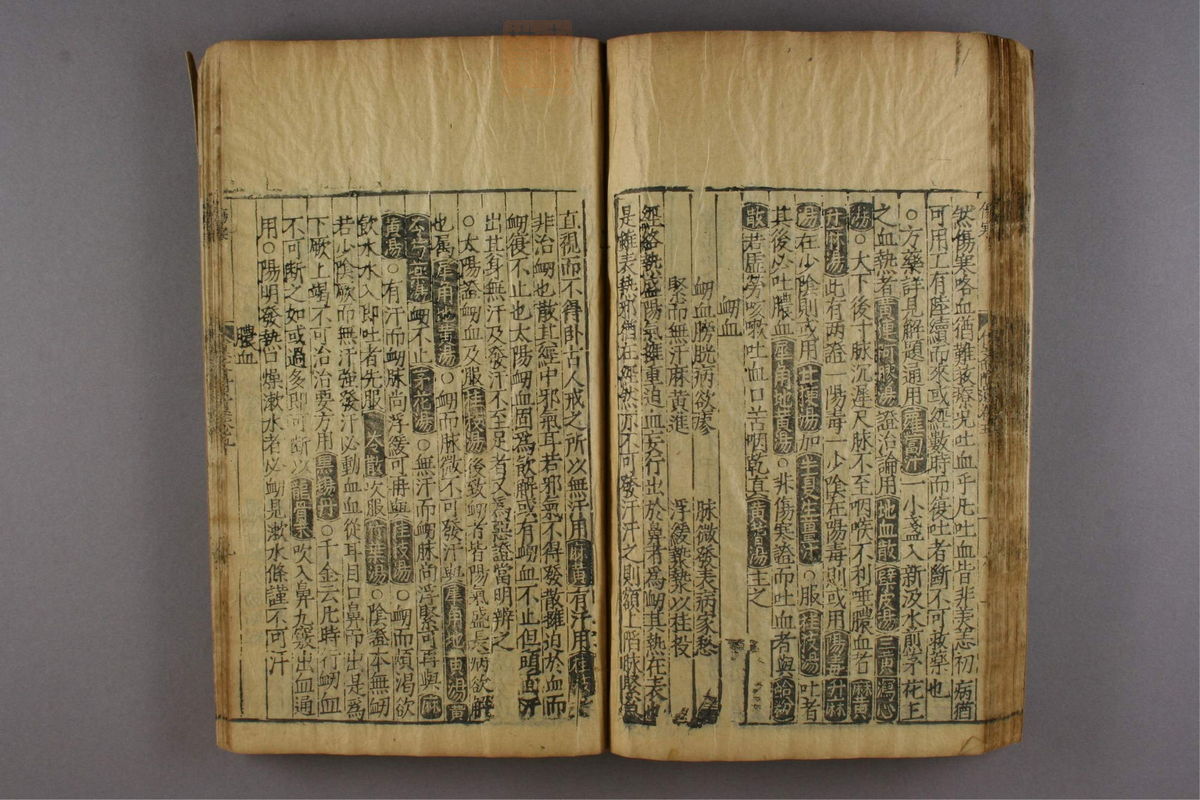 然傷寒咯血猶難救療况吐血乎凡吐血皆非美恙初病猶
可用工有陸續而來或經數時而復吐者斷不可救藥也
○方藥詳見解題通用蘿蔔汁一小盞入新汲水煎茅花主
之血熱者黃連阿膠湯證治論用地血散蘗皮湯三黃瀉心
湯○大下後寸脉沉遲尺脉不至咽喉不利唾膿血者麻黃
升麻湯此有两證一陽毒一少陰在陽毒則或用陽毒升麻
湯在少陰則或用甘桔湯加半夏生薑汁○服桂枝湯吐者
其後必吐膿血犀角地黃湯○非傷寒證而吐血者與蛤粉
散若虛勞咳嗽吐血口苦咽乾真黃耆湯主之
衂血
衂血膀胱病欲瘳　脉微發表病家愁
緊而無汗麻黃進　浮緩漐漐以桂投
經絡熱盛陽氣擁重迫血妄行出於鼻者為衂其熱在表也
是雖表熱邪猶在經然亦不可發汗汗之則額上陷脉緊急
直視而不得卧古人戒之所以無汗用麻黃有汗用桂枝
非治衂也散其經中邪氣耳若邪氣不得發散擁迫於血而
衂復不止也太陽衂血固為欲解或有衂血不止但頭面汗
出其身無汗及發汗不至足者又為惡證當明辨之
○太陽證衂血及服桂枝湯後致衂者皆陽氣盛長病欲解
也寫犀角地黃湯○衂而脉微不可發汗與犀角地黃湯黃
芩芍藥湯衂不止茅花湯○無汗而衂脉尚浮緊可再與麻
黃湯○有汗而衂脉尚浮緩可再與桂枝湯○衂而煩渴欲
飲水水入即吐者先服五苓散次服竹葉湯○陰證本無衂
若少陰厥而無汗強發汗必動血血從耳目口鼻而出是為
下厥上竭不可治治要方用黑錫丹○千金云凡時行衂血
不可斷之如或過多即可斷以龍骨末吹入鼻九竅出血通
用○陽明發熱口燥漱水者必衂見漱水條謹不可汗
膿血